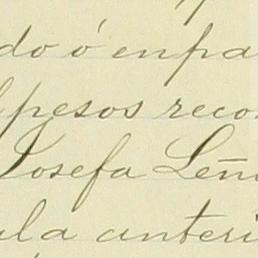 do ó enpa
pesos reco
Josefa Leñ
ula anteri